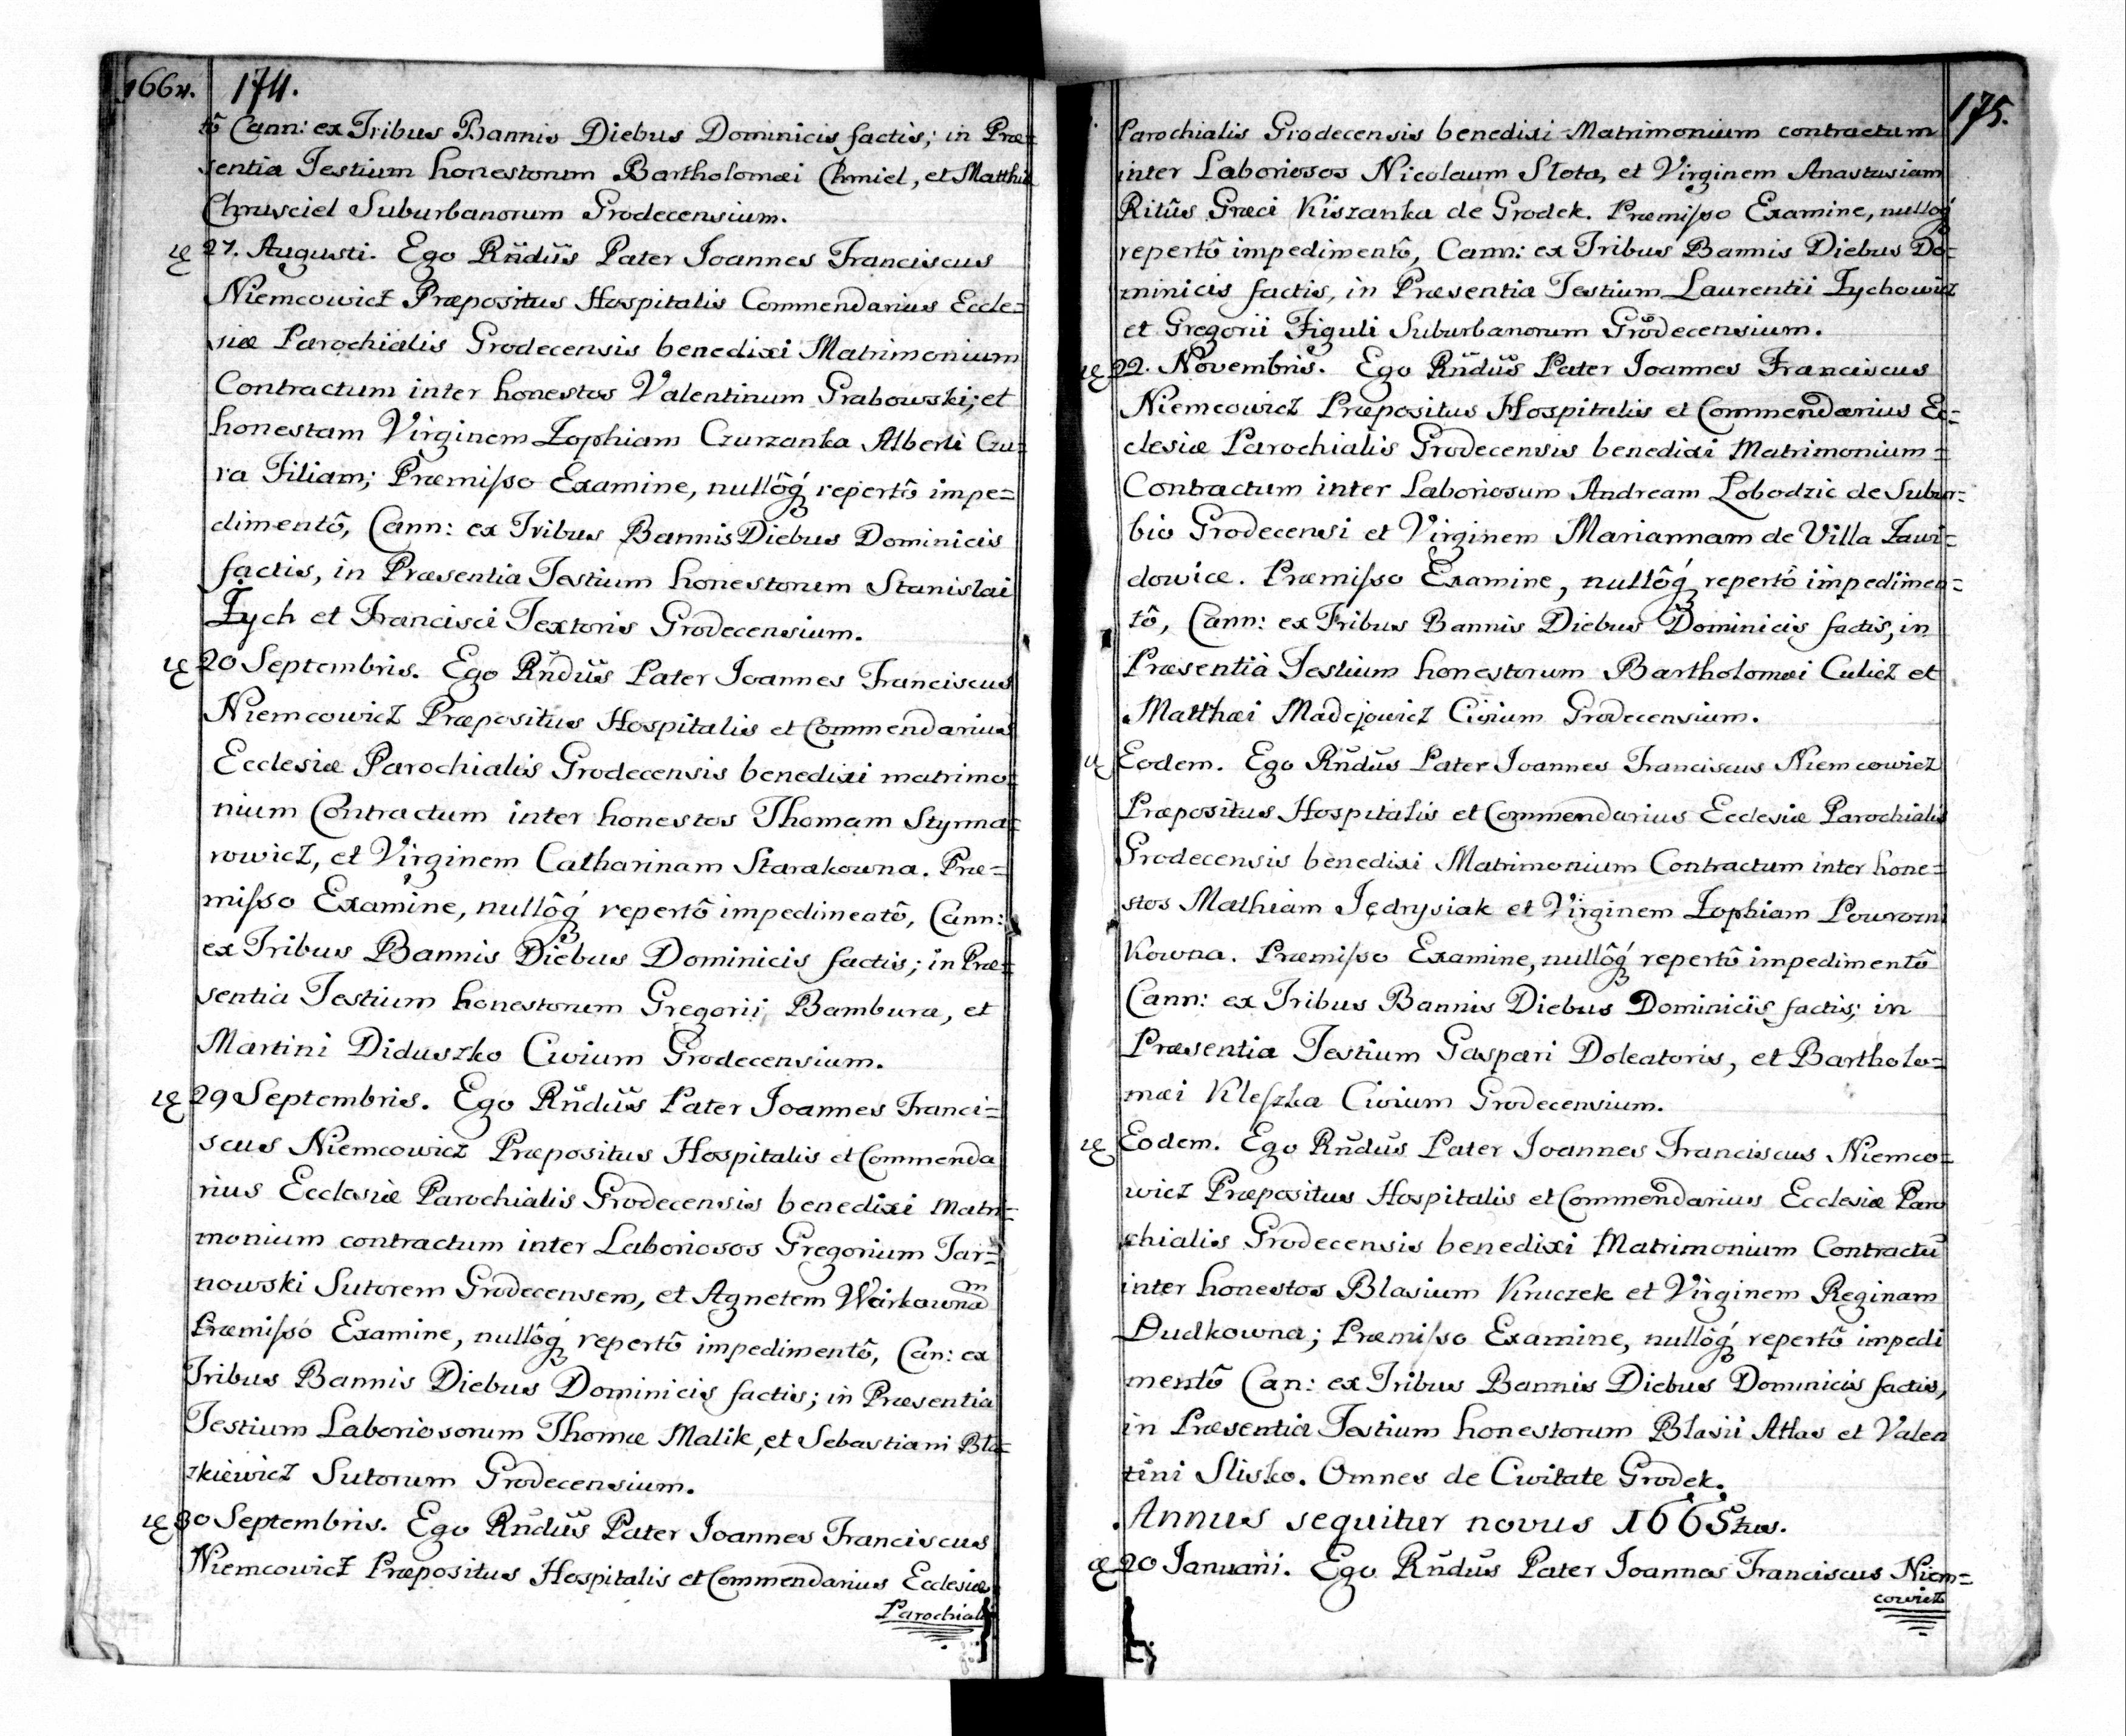 1664. 174.
tô Cann: ex Tribus Bannis Diebus Dominicis factis; in Præ=
sentia Testium honestorum Bartholomæi Chmiel, et Matthiæ
Chrusciel Suburbanorum Grodecensium.
27. Augusti. Ego Rñdũs Pater Joannes Franciscus
Niemcowicz Præpositus Hospitalis Commendarius Eccle=
siæ Parochialis Grodecensis benedixi Matrimonium
Contractum inter honestos Valentinum Grabowski; et
honestam Virginem Zophiam Czurzanka Alberti Czu=
ra Filiam; Præmisso Examine, nullôq́ repertô impe=
dimentô, Cann: ex Tribus Bannis Diebus Dominicis
factis, in Præsentia Testium honestorum Stanislai
Zych et Francisci Textoris Grodecensium.
20 Septembris. Ego Rñdũs Pater Joannes Franciscus
Niemcowicz Præpositus Hospitalis et Commendarius
Ecclesiæ Parochialis Grodecensis benedixi matrimo=
nium Contractum inter honestos Thomam Styrma=
rowicz, et Virginem Catharinam Starakowna. Præ=
misso Examine, nullôq́ repertô impedimentô, Cann:
ex Tribus Bannis Diebus Dominicis factis; in Præ=
sentia Testium honestorum Gregorii Bambura, et
Martini Diduszko Civium Grodecensium.
29 Septembris. Ego Rñdũs Pater Joannes Franci=
scus Niemcowicz Præpositus Hospitalis et Commenda
rius Ecclesiæ Parochialis Grodecensis benedixi Matri=
monium contractum inter Laboriosos Gregorium Tar=
nowski Sutorem Grodecensem, et Agnetem Warkownam
Præmisso Examine, nullôq́ repertô impedimentô, Can: ex
Tribus Bannis Diebus Dominicis factis; in Præsentia
Testium Laboriosorum Thomæ Malik, et Sebastiani Bła=
zkiewicz Sutorum Grodecensium.
30 Septembris. Ego Rñdũs Pater Joannes Franciscus
Niemcowicz Præpositus Hospitalis et Commendarius Ecclesiæ
Parochialis
175.
Parochialis Grodecensis benedixi Matrimonium contractum
inter Laboriosos Nicolaum Słota, et Virginem Anastasiam
Ritûs Græci Kiszanka de Grodek. Præmisso Examine, nullôq́
repertô impedimentô, Cann: ex Tribus Bannis Diebus Do=
minicis factis, in Præsentia Testium Laurentii Zychowicz
et Gregorii Figuli Suburbanorum Grodecensium.
22. Novembris. Ego Rñdũs Pater Joannes Franciscus
Niemcowicz Præpositus Hospitalis et Commendarius Ec=
clesiæ Parochialis Grodecensis benedixi Matrimonium=
Contractum inter Laboriosum Andream Lobodzic de Subur=
bio Grodecensi et Virginem Mariannam de Villa Zawi=
dowice. Præmisso Examine, nullôq́ repertô impedimen=
tô, Cann: ex Tribus Bannis Diebus Dominicis factis, in
Præsentia Testium honestorum Bartholomæi Culicz et
Matthæi Madejowicz Civium Grodecensium.
Eodem. Ego Rñdũs Pater Joannes Franciscus Niemcowicz
Præpositus Hospitalis et Commendarius Ecclesiæ Parochialis
Grodecensis benedixi Matrimonium Contractum inter hone=
stos Mathiam Jędrysiak et Virginem Zophiam Powrozni
kowna. Præmisso Examine, nullôq́ repertô impedimentô
Cann: ex Tribus Bannis Diebus Dominicis factis; in
Præsentia Testium Gaspari Doleatoris, et Bartholo=
mæi Kleszka Civium Grodecensium.
Eodem. Ego Rñdũs Pater Joannes Franciscus Niemco=
wicz Præpositus Hospitalis et Commendarius Ecclesiæ Paro
chialis Grodecensis benedixi Matrimonium Contractũ
inter honestos Blasium Kruczek et Virginem Reginam
Dudkowna; Præmisso Examine, nullôq́ repertô impedi
mentô Can: ex Tribus Bannis Diebus Dominicis factis,
in Præsentia Testium honestorum Blasii Atlas et Valen
tini Slisko. Omnes de Civitate Grodek.
Annus sequitur novus 1665tus.
20 Januarii. Ego Rñdũs Pater Joannes Franciscus Niem=
cowicz